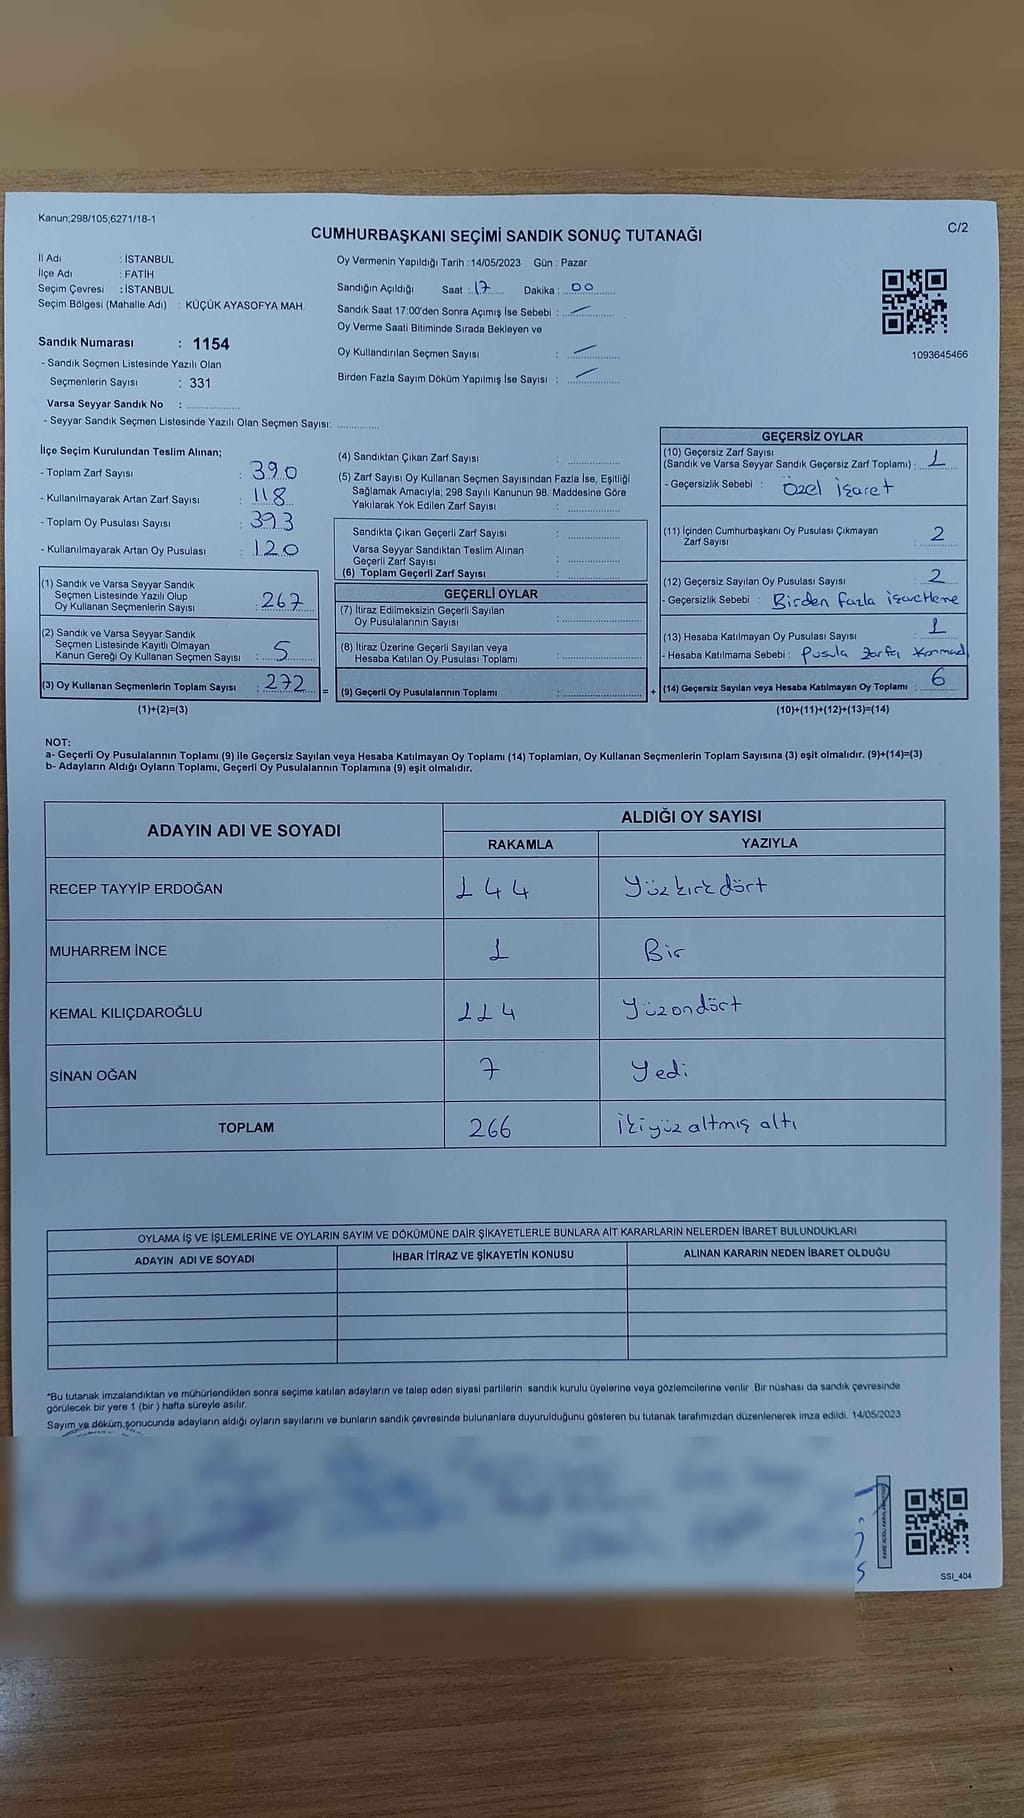 Kanun;298/105,6271/18-1
C/2
CUMHURBAŞKANI SEÇİMİ SANDIK SONUÇ TUTANAĞI
İl Adı : İSTANBUL
İlçe Adı : FATİH
Seçim Çevresi : İSTANBUL
Seçim Bölgesi (Mahalle Adı) : KÜÇÜK AYASOFYA MAH.
Sandık Numarası : 1154
- Sandık Seçmen Listesinde Yazılı Olan
Seçmenlerin Sayısı : 331
Varsa Seyyar Sandık No : ..................
- Seyyar Sandık Seçmen Listesinde Yazılı Olan Seçmen Sayısı: .............
Oy Vermenin Yapıldığı Tarih :14/05/2023 Gün : Pazar
Sandığın Açıldığı Saat : 17 Dakika : 00
Sandık Saat 17:00'den Sonra Açımış İse Sebebi : —
Oy Verme Saati Bitiminde Sırada Bekleyen ve
Oy Kullandırılan Seçmen Sayısı : —
Birden Fazla Sayım Döküm Yapılmış İse Sayısı : —
1093645466
İlçe Seçim Kurulundan Teslim Alınan;
- Toplam Zarf Sayısı : 390
- Kullanılmayarak Artan Zarf Sayısı : 118
- Toplam Oy Pusulası Sayısı : 393
- Kullanılmayarak Artan Oy Pusulası : 120
(1) Sandık ve Varsa Seyyar Sandık
Seçmen Listesinde Yazılı Olup
Oy Kullanan Seçmenlerin Sayısı : 267
(2) Sandık ve Varsa Seyyar Sandık
Seçmen Listesinde Kayıtlı Olmayan
Kanun Gereği Oy Kullanan Seçmen Sayısı : 5
(3) Oy Kullanan Seçmenlerin Toplam Sayısı : 272 =
(1)+(2)=(3)
(4) Sandıktan Çıkan Zarf Sayısı : ..................
(5) Zarf Sayısı Oy Kullanan Seçmen Sayısından Fazla İse, Eşitliği
Sağlamak Amacıyla; 298 Sayılı Kanunun 98. Maddesine Göre
Yakılarak Yok Edilen Zarf Sayısı : ..................
Sandıkta Çıkan Geçerli Zarf Sayısı : ..................
Varsa Seyyar Sandıktan Teslim Alınan
Geçerli Zarf Sayısı : ..................
(6) Toplam Geçerli Zarf Sayısı : ..................
GEÇERLİ OYLAR
(7) İtiraz Edilmeksizin Geçerli Sayılan
Oy Pusulalarının Sayısı : ..................
(8) İtiraz Üzerine Geçerli Sayılan veya
Hesaba Katılan Oy Pusulası Toplamı : ..................
(9) Geçerli Oy Pusulalarının Toplamı : .................. +
GEÇERSİZ OYLAR
(10) Geçersiz Zarf Sayısı
(Sandık ve Varsa Seyyar Sandık Geçersiz Zarf Toplamı) : 1
- Geçersizlik Sebebi : Özel işaret
(11) İçinden Cumhurbaşkanı Oy Pusulası Çıkmayan
Zarf Sayısı : 2
(12) Geçersiz Sayılan Oy Pusulası Sayısı : 2
- Geçersizlik Sebebi : Birden fazla işaretleme
(13) Hesaba Katılmayan Oy Pusulası Sayısı : 1
- Hesaba Katılmama Sebebi : Pusula zarfa
(14) Geçersiz Sayılan veya Hesaba Katılmayan Oy Toplamı : 6
(10)+(11)+(12)+(13)=(14)
NOT:
a- Geçerli Oy Pusulalarının Toplamı (9) ile Geçersiz Sayılan veya Hesaba Katılmayan Oy Toplamı (14) Toplamları, Oy Kullanan Seçmenlerin Toplam Sayısına (3) eşit olmalıdır. (9)+(14)=(3)
b- Adayların Aldığı Oyların Toplamı, Geçerli Oy Pusulalarının Toplamına (9) eşit olmalıdır.
ADAYIN ADI VE SOYADI ALDIĞI OY SAYISI
RAKAMLA YAZIYLA
RECEP TAYYİP ERDOĞAN 144 Yüzkırkdört
MUHARREM İNCE 1 Bir
KEMAL KILIÇDAROĞLU 114 Yüzondört
SİNAN OĞAN 7 Yedi
TOPLAM 266 İkiyüz altmış altı
OYLAMA İŞ VE İŞLEMLERİNE VE OYLARIN SAYIM VE DÖKÜMÜNE DAİR ŞİKAYETLERLE BUNLARA AİT KARARLARIN NELERDEN İBARET BULUNDUKLARI
ADAYIN ADI VE SOYADI İHBAR İTİRAZ VE ŞİKAYETİN KONUSU ALINAN KARARIN NEDEN İBARET OLDUĞU
*Bu tutanak imzalandıktan ve mühürlendikten sonra seçime katılan adayların ve talep eden siyasi partilerin sandık kurulu üyelerine veya gözlemcilerine verilir. Bir nüshası da sandık çevresinde
görülecek bir yere 1 (bir ) hafta süreyle asılır.
Sayım ve döküm sonucunda adayların aldığı oyların sayılarını ve bunların sandık çevresinde bulunanlara duyurulduğunu gösteren bu tutanak tarafımızdan düzenlenerek imza edildi. 14/05/2023
SSI_404